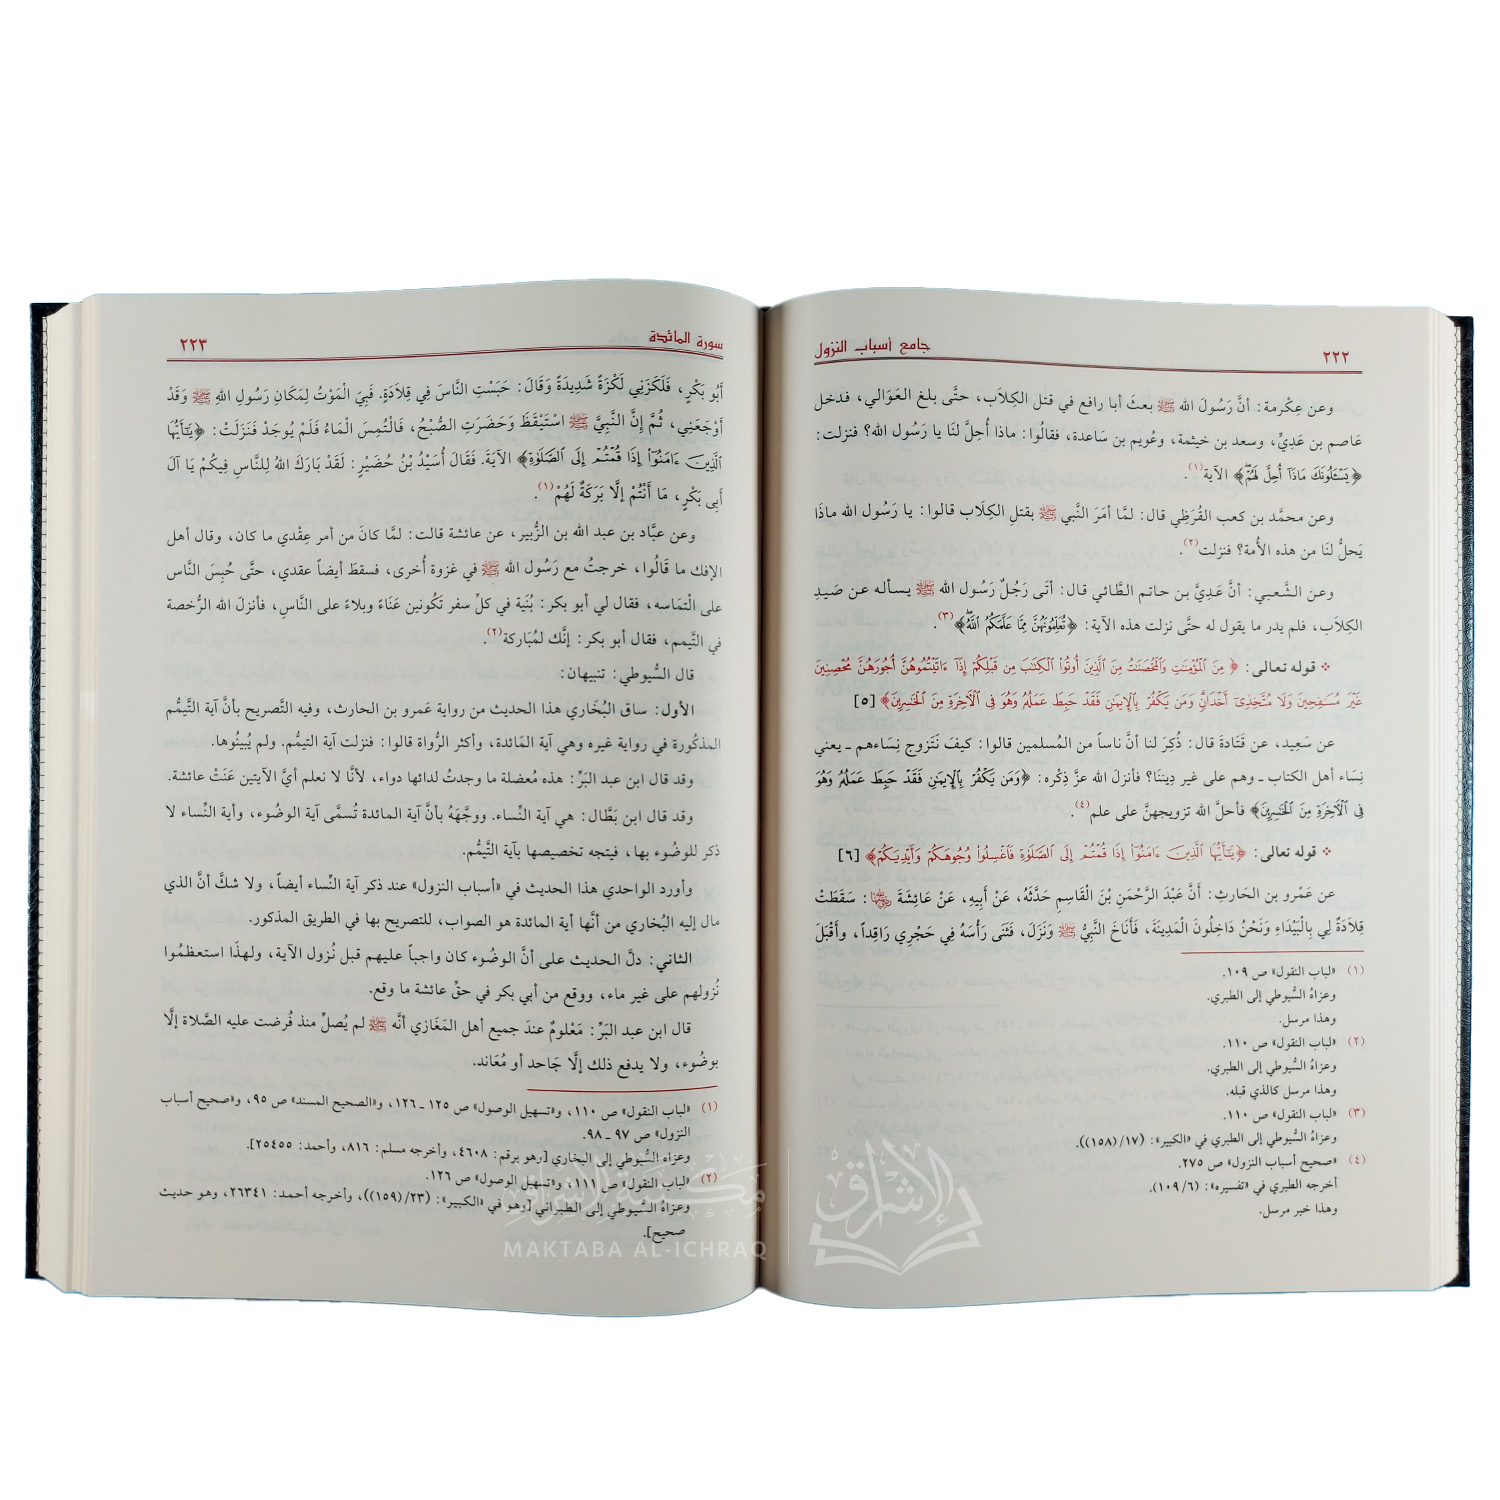 جامع أسباب النزول
٢٢٢
وعن عِكْرمة: أنَّ رَسُولَ الله ﷺ بعثَ أبا رافع في قتل الكِلاَب، حتَّى بلغ العَوَالي، فدخل
عَاصم بن عَدِيٍّ، وسعد بن خيثمة، وعُويم بن سَاعدة، فقالُوا: ماذا أُحِلَّ لنَا يا رَسُول الله؟ فنزلت:
﴿يَسْـَٔلُونَكَ مَاذَآ أُحِلَّ لَهُمْ﴾ الآية(١).
وعن محمَّد بن كعب القُرَظِي قال: لمَّا أمَرَ النَّبي ﷺ بقتلِ الكِلَاب قالوا: يا رَسُول الله ماذَا
يَحلُّ لنَا من هذه الأُمة؟ فنزلت(٢).
وعن الشَّعبي: أنَّ عَدِيَّ بن حاتم الطَّائي قال: أتَى رَجُلٌ رَسُول الله ﷺ يسأله عن صَيدِ
الكِلاَب، فلم يدر ما يقول له حتَّى نزلت هذه الآية: ﴿تُعَلِّمُونَهُنَّ مِمَّا عَلَّمَكُمُ ٱللَّهُ﴾(٣).
❖ قوله تعالى: ﴿مِنَ ٱلْمُؤْمِنَٰتِ وَٱلْمُحْصَنَٰتُ مِنَ ٱلَّذِينَ أُوتُوا۟ ٱلْكِتَٰبَ مِن قَبْلِكُمْ إِذَآ ءَاتَيْتُمُوهُنَّ أُجُورَهُنَّ مُحْصِنِينَ
غَيْرَ مُسَٰفِحِينَ وَلَا مُتَّخِذِىٓ أَخْدَانٍ وَمَن يَكْفُرْ بِٱلْإِيمَٰنِ فَقَدْ حَبِطَ عَمَلُهُۥ وَهُوَ فِى ٱلْـَٔاخِرَةِ مِنَ ٱلْخَٰسِرِينَ﴾ [٥]
عن سَعِيد، عن قَتَادة قَالَ: ذُكِرَ لنا أنَّ ناساً من المُسلمين قالوا: كيفَ نَتَزوج نِسَاءهم ـ يعني
نِسَاء أهل الكتاب ـ وهم على غير دِيننَا؟ فأنزلَ الله عزَّ ذِكْره: ﴿وَمَن يَكْفُرْ بِٱلْإِيمَٰنِ فَقَدْ حَبِطَ عَمَلُهُۥ وَهُوَ
فِى ٱلْـَٔاخِرَةِ مِنَ ٱلْخَٰسِرِينَ﴾ فأحلَّ الله تزويجهنَّ على علم(٤).
❖ قوله تعالى: ﴿يَٰٓأَيُّهَا ٱلَّذِينَ ءَامَنُوٓا۟ إِذَا قُمْتُمْ إِلَى ٱلصَّلَوٰةِ فَٱغْسِلُوا۟ وُجُوهَكُمْ وَأَيْدِيَكُمْ﴾ [٦]
عن عَمْرو بن الحَارث: أنَّ عَبْدَ الرَّحْمَنِ بْنَ الْقَاسِمِ حَدَّثَهُ، عَنْ أَبِيهِ، عَنْ عَائِشَةَ رضي الله عنها: سَقَطَتْ
قِلاَدَةٌ لِي بِالْبَيْدَاءِ وَنَحْنُ دَاخِلُونَ الْمَدِينَةَ، فَأَنَاخَ النَّبِيُّ ﷺ وَنَزَلَ، فَثَنَى رَأْسَهُ فِي حَجْرِي رَاقِداً، وأَقْبَلَ
(١) «لباب النقول» ص ١٠٩.
وعزاهُ السُّيوطي إلى الطبري.
وهذا مرسل.
(٢) «لباب النقول» ص ١١٠.
وعزاهُ السُّيوطي إلى الطبري.
وهذا مرسل كالذي قبله.
(٣) «لباب النقول» ص ١١٠.
وعزاهُ السُّيوطي إلى الطبري في «الكبير»: (١٧/(١٥٨)).
(٤) «صحيح أسباب النزول» ص ٢٧٥.
أخرجه الطبري في «تفسيره»: (٦/ ١٠٩).
وهذا خبر مرسل.
سورة المائدة
٢٢٣
أَبُو بَكْرٍ، فَلَكَزَنِي لَكْزَةً شَدِيدَةً وَقَالَ: حَبَسْتِ النَّاسَ فِي قِلاَدَةٍ. فَبِيَ الْمَوْتُ لِمَكَانِ رَسُولِ اللهِ ﷺ وَقَدْ
أَوْجَعَنِي، ثُمَّ إِنَّ النَّبِيَّ ﷺ اسْتَيْقَظَ وَحَضَرَتِ الصُّبْحُ، فَالْتُمِسَ الْمَاءُ فَلَمْ يُوجَدْ فَنَزَلَتْ: ﴿يَٰٓأَيُّهَا
ٱلَّذِينَ ءَامَنُوٓا۟ إِذَا قُمْتُمْ إِلَى ٱلصَّلَوٰةِ﴾ الآيَةَ. فَقَالَ أُسَيْدُ بْنُ حُضَيْرٍ: لَقَدْ بَارَكَ اللهُ لِلنَّاسِ فِيكُمْ يَا آلَ
أَبِى بَكْرٍ، مَا أَنْتُمْ إِلَّا بَرَكَةٌ لَهُمْ(١).
وعن عبَّاد بن عبد الله بن الزُّبير، عن عائشة قالت: لمَّا كانَ من أمر عِقْدي ما كان، وقال أهل
الإفك ما قَالُوا، خرجتُ مع رَسُول الله ﷺ في غزوة أُخرى، فسقطَ أيضاً عقدي، حتَّى حُبِسَ النَّاس
على الْتمَاسه، فقال لي أبو بكر: بُنَية في كلِّ سفر تَكُونين عَنَاءً وبلاءً على النَّاس، فأنزلَ الله الرُّخصة
في التَّيمم، فقال أبو بكر: إنَّك لمُبَاركة(٢).
قال السُّيوطي: تنبيهان:
الأول: ساق البُخَاري هذا الحديث من رواية عَمرو بن الحارث، وفيه التَّصريح بأنَّ آية التَّيمُّم
المذكُورة في رواية غيره وهي آية المَائدة، وأكثر الرُّواة قالوا: فنزلت آية التيمُّم. ولم يُبينُوها.
وقد قال ابن عبد البَرِّ: هذه مُعضلة ما وجدتُ لدائها دواء، لأنَّا لا نعلم أيَّ الآيتين عَنَتْ عائشة.
وقد قال ابن بَطَّال: هي آية النِّساء. ووجَّهَهُ بأنَّ آية المائدة تُسمَّى آية الوضُوء، وأية النِّساء لا
ذكر للوضُوء بها، فيتجه تخصيصها بآية التَّيمُّم.
وأورد الواحدي هذا الحديث في «أسباب النزول» عند ذكر آية النِّساء أيضاً، ولا شكَّ أنَّ الذي
مال إليه البُخاري من أنَّها أية المائدة هو الصواب، للتصريح بها في الطريق المذكور.
الثاني: دلَّ الحديث على أنَّ الوضُوء كان واجباً عليهم قبل نُزول الآية، ولهذَا استعظمُوا
نُزولهم على غير ماء، ووقع من أبي بكر في حقِّ عائشة ما وقع.
قال ابن عبد البَرِّ: مَعْلومٌ عندَ جميع أهل المَغَازي أنَّه ﷺ لم يُصلِّ منذ فُرضت عليه الصَّلاة إلَّا
بوضُوء، ولا يدفع ذلك إلَّا جَاحد أو مُعَاند.
(١) «لباب النقول» ص ١١٠، و«تسهيل الوصول» ص ١٢٥ ـ ١٢٦، و«الصحيح المسند» ص ٩٥، و«صحيح أسباب
النزول» ص ٩٧ ـ ٩٨.
وعزاه السُّيوطي إلى البخاري [وهو برقم: ٤٦٠٨، وأخرجه مسلم: ٨١٦، وأحمد: ٢٥٤٥٥].
(٢) «لباب النقول» ص ١١١، و«تسهيل الوصول» ص ١٢٦.
وعزاهُ السُّيوطي إلى الطبراني [وهو في «الكبير»: (٢٣/(١٥٩))، وأخرجه أحمد: ٢٦٣٤١، وهو حديث
صحيح].
مكتبة الإشراق
MAKTABA AL-ICHRAQ
الإشراق